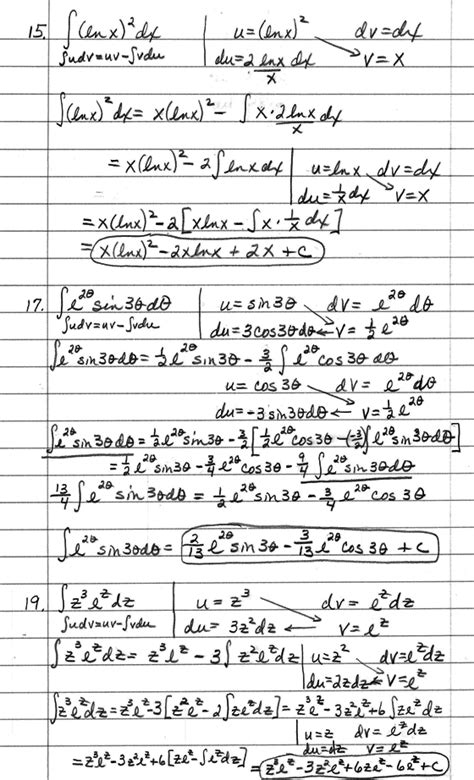 15. ∫(ln x)² dx | u = (ln x)² dv = dx
∫udv = uv - ∫vdu | du = 2 ln x/x dx v = x
∫(ln x)² dx = x(ln x)² - ∫ x · 2 ln x/x dx
= x(ln x)² - 2∫ ln x dx | u = ln x dv = dx
du = 1/x dx v = x
= x(ln x)² - 2[x ln x - ∫ x · 1/x dx]
= x(ln x)² - 2x ln x + 2x + C
17. ∫e^2θ sin 3θ dθ | u = sin 3θ dv = e^2θ dθ
∫udv = uv - ∫vdu | du = 3 cos 3θ dθ ← v = 1/2 e^2θ
∫e^2θ sin 3θ dθ = 1/2 e^2θ sin 3θ - 3/2 ∫ e^2θ cos 3θ dθ
u = cos 3θ dv = e^2θ dθ
du = -3 sin 3θ dθ ← v = 1/2 e^2θ
∫e^2θ sin 3θ dθ = 1/2 e^2θ sin 3θ - 3/2 [1/2 e^2θ cos 3θ - (-3/2)∫e^2θ sin 3θ dθ]
= 1/2 e^2θ sin 3θ - 3/4 e^2θ cos 3θ - 9/4 ∫e^2θ sin 3θ dθ
13/4 ∫e^2θ sin 3θ dθ = 1/2 e^2θ sin 3θ - 3/4 e^2θ cos 3θ
∫e^2θ sin 3θ dθ = 2/13 e^2θ sin 3θ - 3/13 e^2θ cos 3θ + C
19. ∫z³e^z dz | u = z³ dv = e^z dz
∫udv = uv - ∫vdu | du = 3z² dz ← v = e^z
∫z³e^z dz = z³e^z - 3∫ z²e^z dz | u = z² dv = e^z dz
du = 2z dz ← v = e^z
∫z³e^z dz = z³e^z - 3[z²e^z - 2∫ze^z dz] = z³e^z - 3z²e^z + 6∫ze^z dz
u = z dv = e^z dz
du = dz v = e^z
= z³e^z - 3z²e^z + 6[ze^z - ∫e^z dz] = z³e^z - 3z²e^z + 6ze^z - 6e^z + C